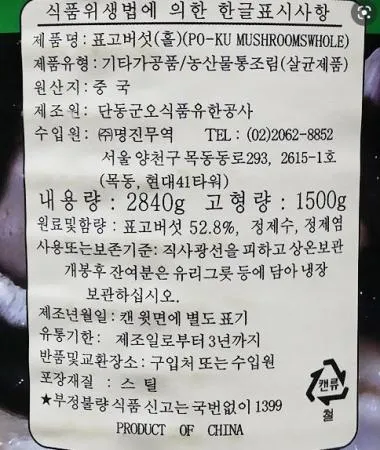 식품위생법에 의한 한글표시사항
제품명 : 표고버섯(홀)(PO-KU MUSHROOMSWHOLE)
제품유형 : 기타가공품/농산물통조림(살균제품)
원산지 : 중 국
제조원 : 단동군오식품유한공사
수입원 : ㈜명진무역 TEL : (02)2062-8852
서울 양천구 목동동로293, 2615-1호
(목동, 현대41타워)
내용량 : 2840g 고형량 : 1500g
원료및함량 : 표고버섯 52.8%, 정제수, 정제염
사용또는보존기준: 직사광선을 피하고 상온보관
개봉후 잔여분은 유리그릇 등에 담아 냉장
보관하십시오.
제조년월일 : 캔 윗면에 별도 표기
유통기한 : 제조일로부터 3년까지
반품및교환장소 : 구입처 또는 수입원
포장재질 : 스 틸
캔류
철
★부정불량 식품 신고는 국번없이 1399
PRODUCT OF CHINA